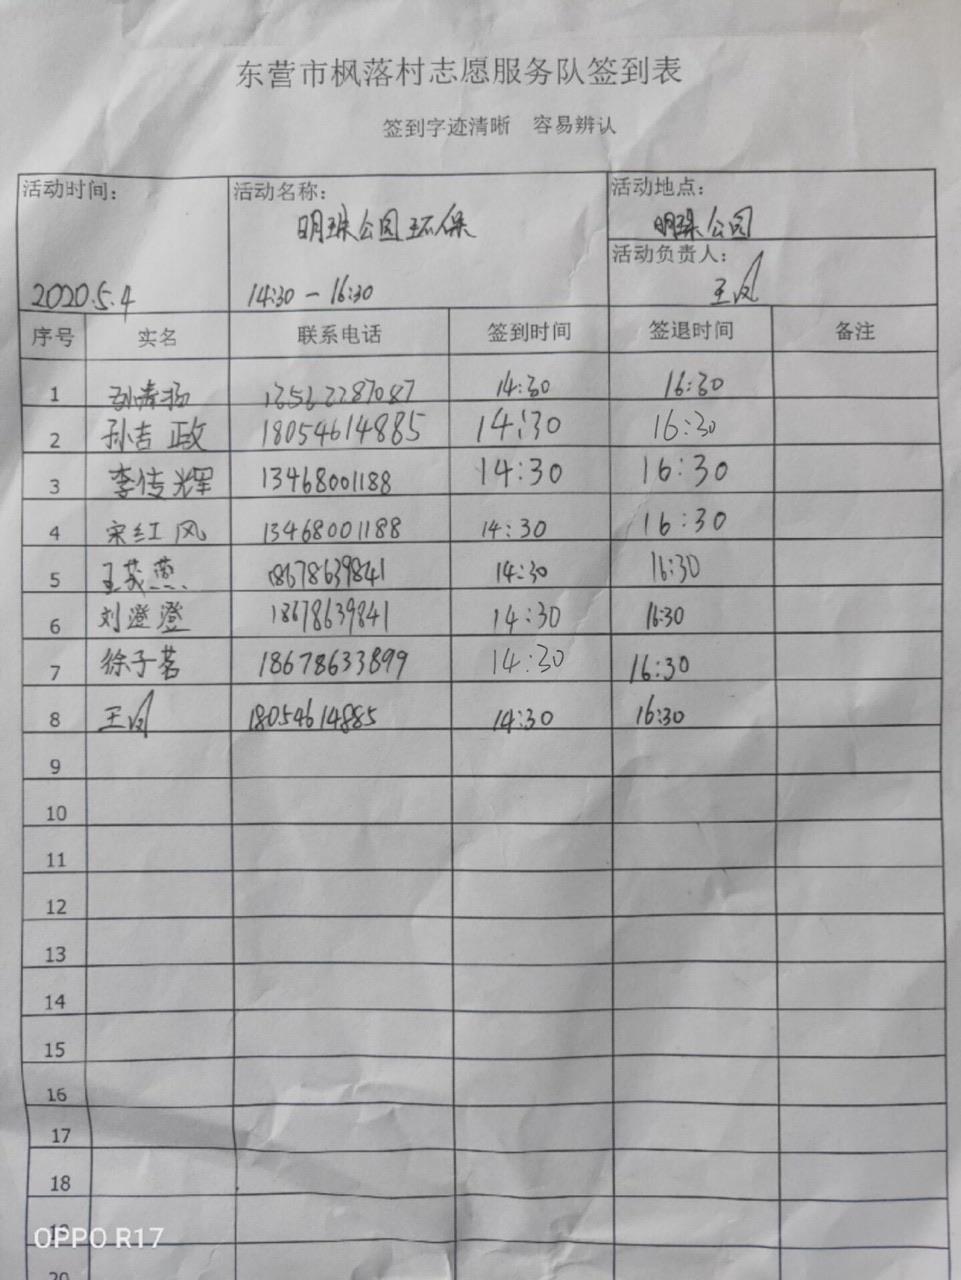 东营市枫落村志愿服务队签到表
签到字迹清晰 容易辨认
活动时间： 活动名称： 活动地点：
明珠公园环保 明珠公园
活动负责人：
2020.5.4 14:30-16:30 王凤
序号 实名 联系电话 签到时间 签退时间 备注
1 孙清扬 14:30 16:30
2 孙吉政 18054614885 14:30 16:30
3 李传辉 13468001188 14:30 16:30
4 宋红风 13468001188 14:30 16:30
5 18678639841 14:30 16:30
6 刘澄澄 18678639841 14:30 16:30
7 徐子茗 18678633899 14:30 16:30
8 王凤 18054614885 14:30 16:30
9
10
11
12
13
14
15
16
17
18
19
20
OPPO R17